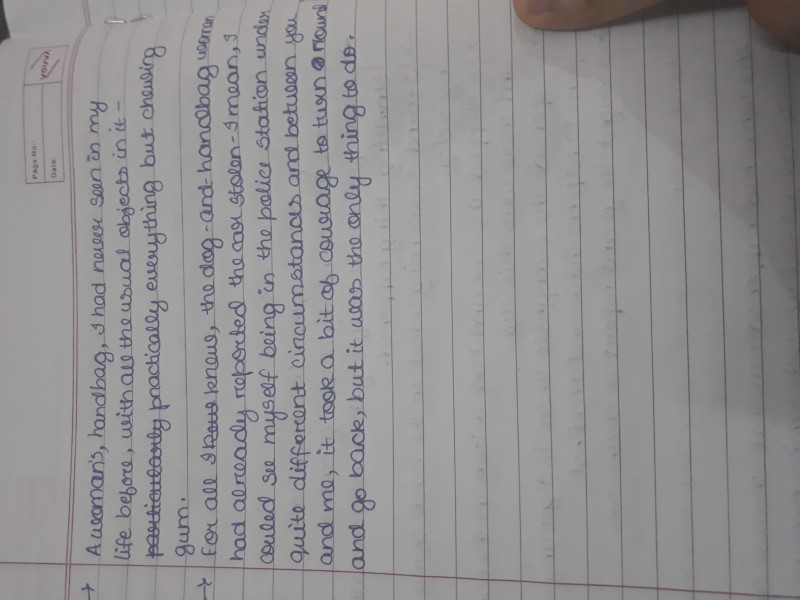 Page No.:
Date:
YOUVA
→ A woman's, handbag, I had never seen in my
life before, with all the usual objects in it -
particularly practically everything but chewing
gum.
→ For all I know knew, the dog-and-handbag woman
had already reported the car stolen - I mean, I
could see myself being in the police station under
quite different circumstances and between you
and me, it took a bit of courage to turn round
and go back, but it was the only thing to do.